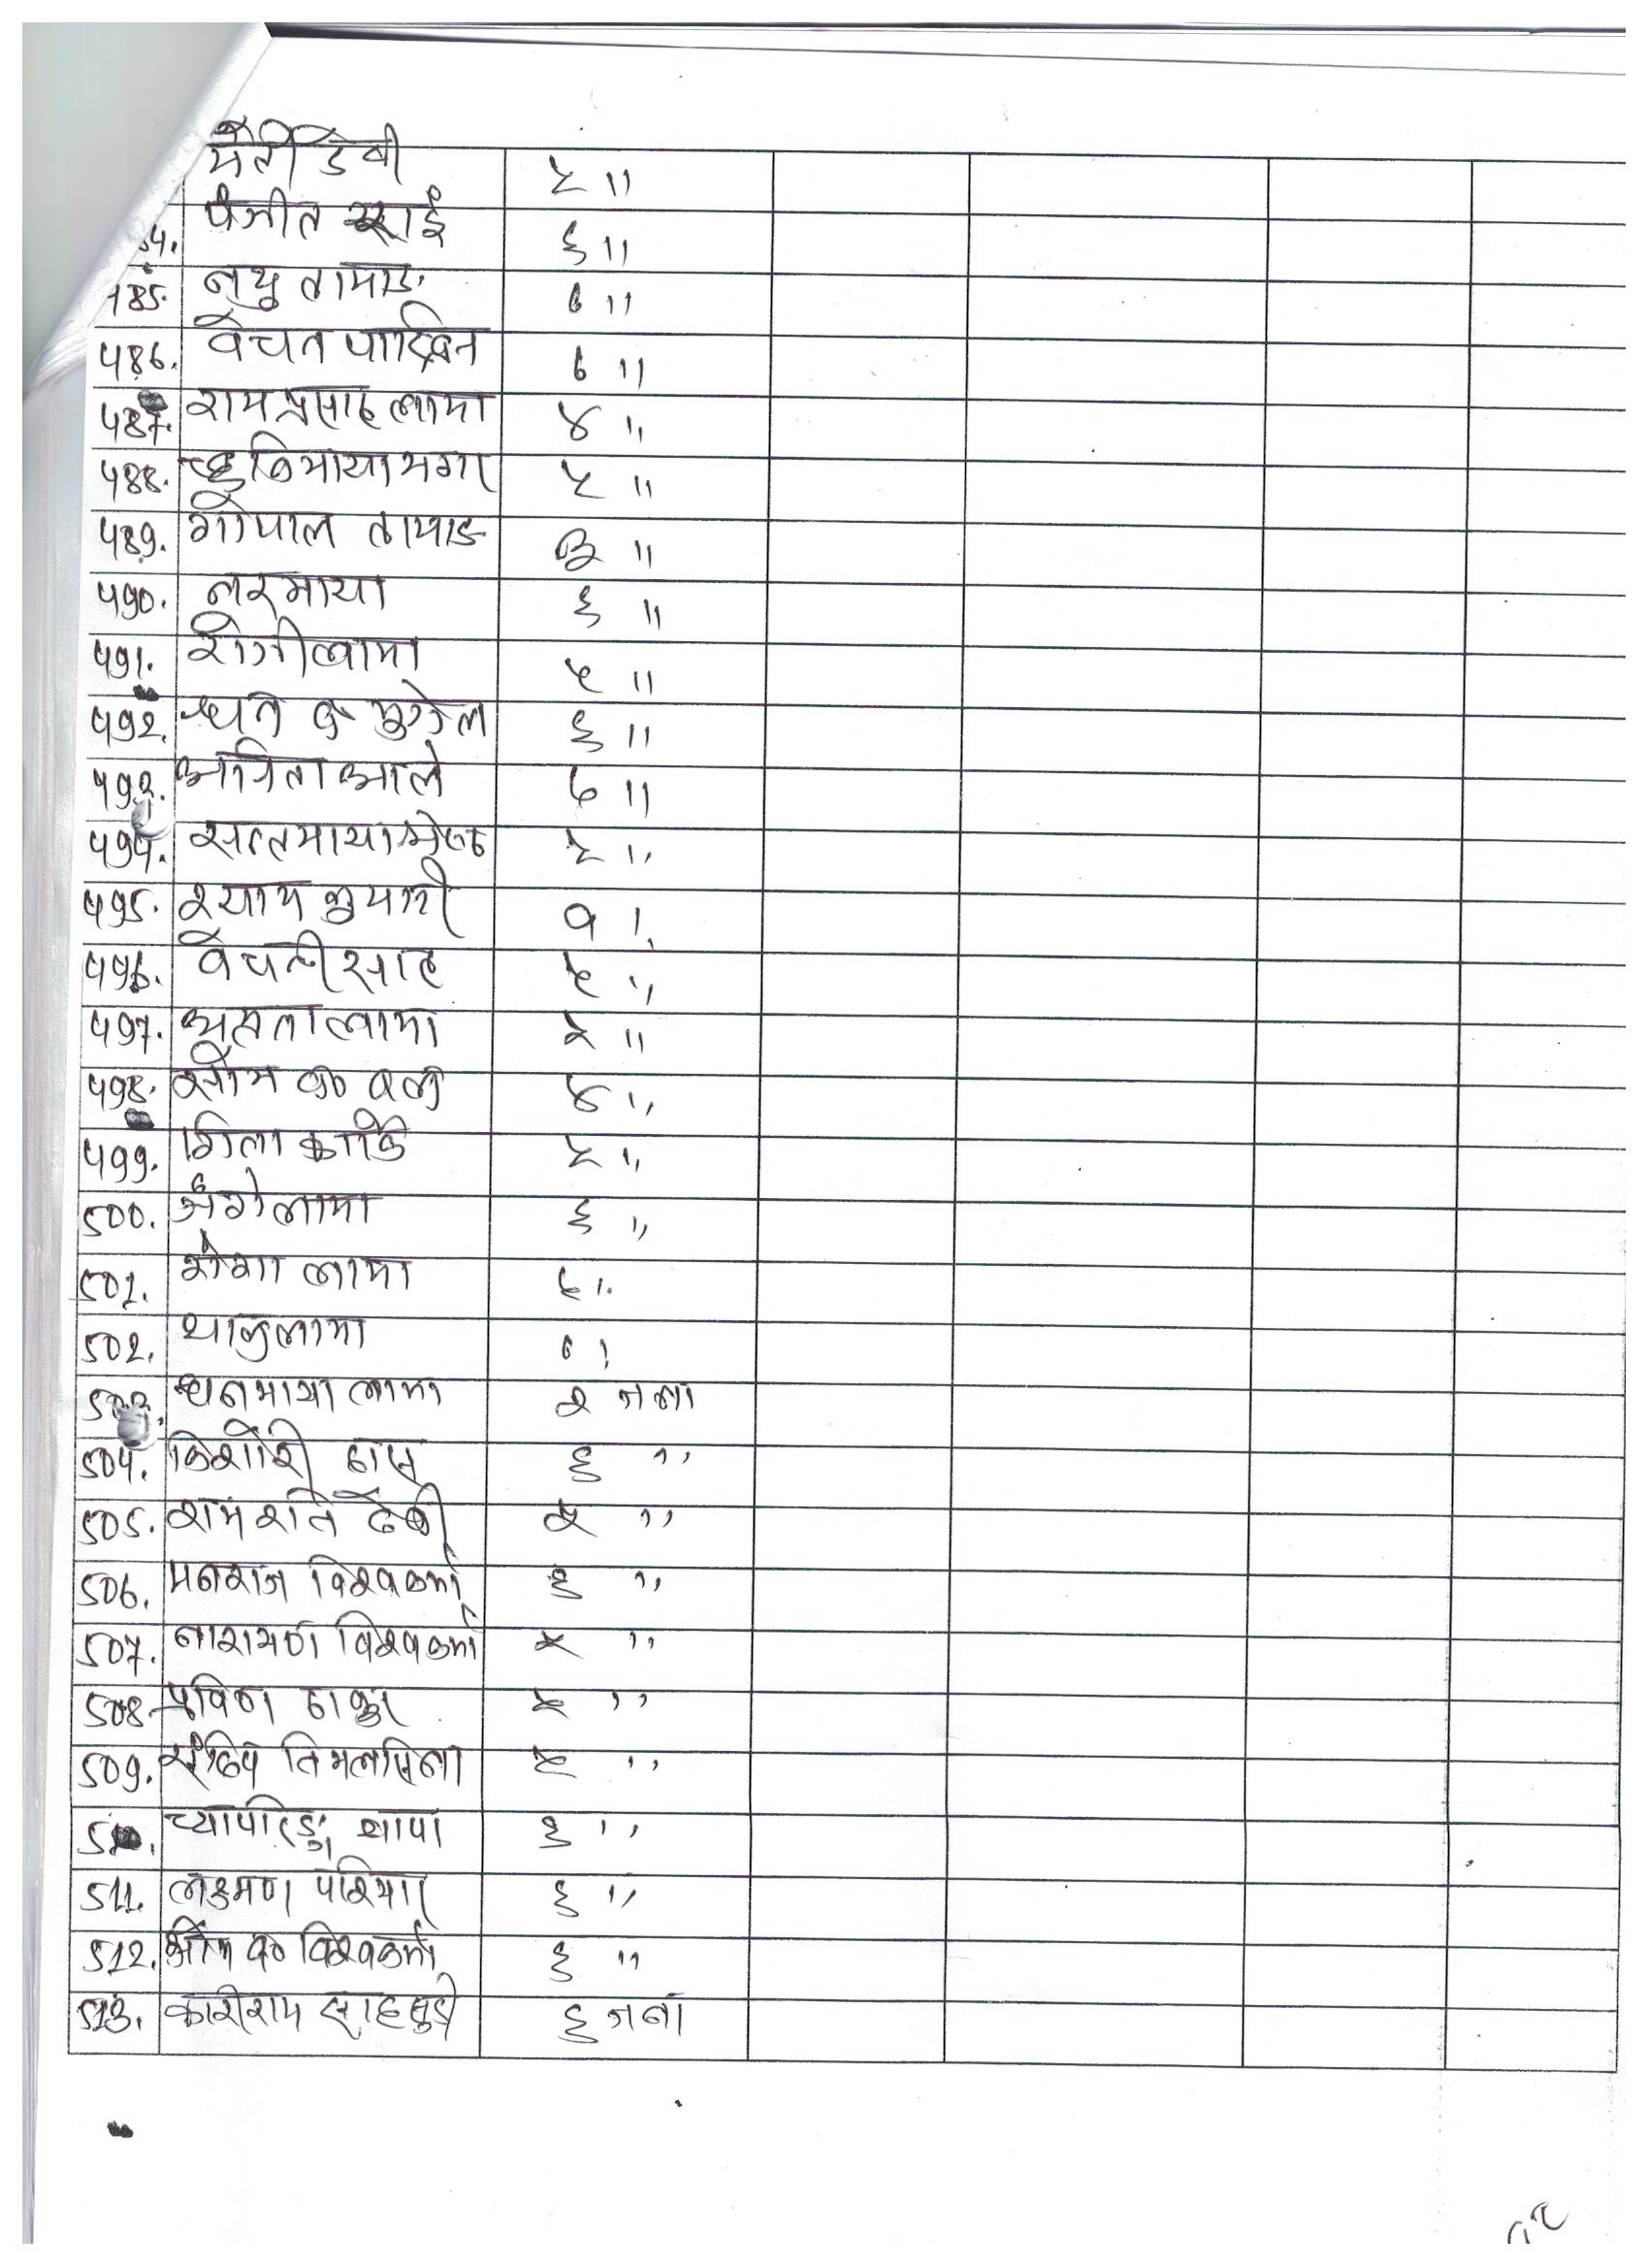 मैती देवी ५ ॥
84. पंजीत राई ६ ॥
485. नथु तामाङ ७ ॥
486. वेचन पाख्रिन ७ ॥
487. रामप्रसाद लामा ४ ॥
488. छविमाया मगर ५ ॥
489. गोपाल तामाङ ॥
490. नरमाया ६ ॥
491. रोजी लामा ५ ॥
492. मुगेल ६ ॥
493. आले ॥
494. सन्तमाया श्रेष्ठ ५ ॥
495. श्याम कुमारी १ ॥
496. वेचनी साह ५ ॥
497. अमृता लामा ॥
498. सोम ब० वली ४ ॥
499. शिला कार्की ५ ॥
500. लामा ६ ॥
501. लामा ॥
502. लामा ७ ॥
503. धनमाया लामा २ जना
504. किशोरी दास ६ ॥
505. रामरति देवी ५ ॥
506. मनराज विश्वकर्मा ६ ॥
507. नारायण विश्वकर्मा ५ ॥
508. प्रविण ठाकुर ५ ॥
509. संदिप तिमलसिना ५ ॥
थापा ६ ॥
511. लक्ष्मण परियार ६ ॥
512. ओम ब० विश्वकर्मा ६ ॥
513. कारीराम साह सुडी ६ जना